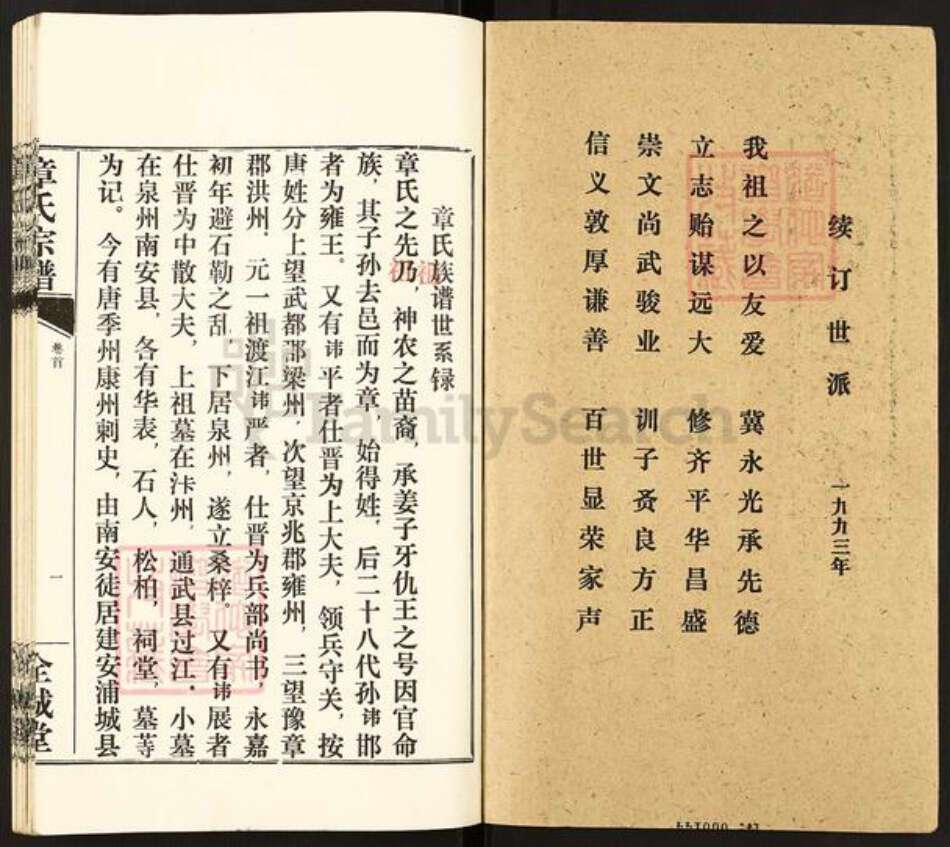 续订世派 一九九三年
我祖之以友爱 冀永光承先德
立志贻谋远大 修齐平华昌盛
崇文尚武骏业 训子孜良方正
信义敦厚谦善 百世显荣家声
章氏族谱世系録
章氏之先乃，神农之苗裔，承姜子牙仇王之号因官命
族，其子孙去邑而为章，始得姓，后二十八代孙讳邯
者为雍王。又有讳平者仕晋为上大夫，领兵守关，按
唐姓分上望武都郡梁州，次望京兆郡雍州，三望豫章
郡洪州，元一祖渡江讳严者，仕晋为兵部尚书，永嘉
初年避石勒之乱，下居泉州，遂立桑梓。又有讳展者
仕晋为中散大夫，上祖墓在汴州，通武县过江·小墓
在泉州南安县，各有华表，石人，松柏，祠堂，墓等
为记。今有唐季州康州刺史，由南安徒居建安浦城县
章氏宗谱
卷首
一
全城堂
FamilySearch